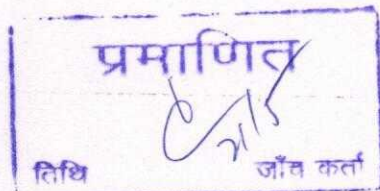 प्रमाणित
तिथि जाँच कर्ता